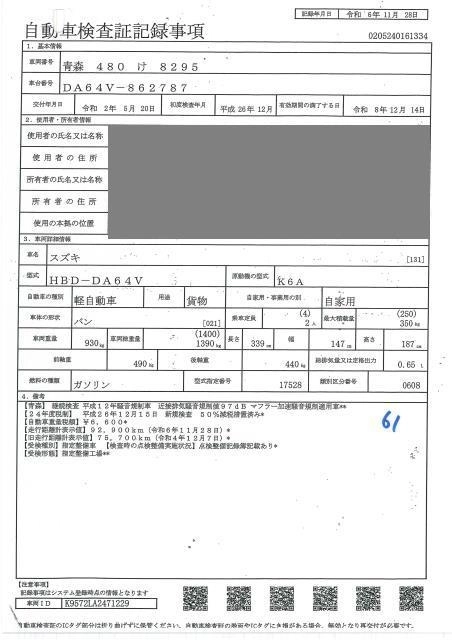 記録年月日 令和 6年11月 28日
自動車検査証記録事項
0205240161334
1. 基本情報
車両番号 青森 480 け 8295
車台番号 DA64V-862787
交付年月日 令和 2年 5月 20日 初度検査年月 平成26年12月 有効期間の満了する日 令和 8年12月 14日
2. 使用者・所有者情報
使用者の氏名又は名称
使用者の住所
所有者の氏名又は名称
所有者の住所
使用の本拠の位置
3. 車両詳細情報
車名 スズキ [131]
型式 HBD-DA64V 原動機の型式 K6A
自動車の種別 軽自動車 用途 貨物 自家用・事業用の別 自家用
車体の形状 バン [021] 乗車定員 (4) 2人 最大積載量 (250) 350kg
車両重量 930kg 車両総重量 (1400) 1390kg 長さ 339cm 幅 147cm 高さ 187cm
前軸重 490kg 後軸重 440kg 総排気量又は定格出力 0.65 L
燃料の種類 ガソリン 型式指定番号 17528 類別区分番号 0608
4. 備考
【青森】 継続検査 平成12年騒音規制車 近接排気騒音規制値97dB マフラー加速騒音規制適用車**
【24年度税制】 平成26年12月15日 新規検査 50%減税措置済み*
【自動車重量税額】 ¥6,600*
【走行距離計表示値】 92,900km (令和6年11月28日)*
【旧走行距離計表示値】 75,700km (令和4年12月7日)*
【受検種別】 指定整備車 【検査時の点検整備実施状況】 点検整備記録簿記載あり*
【受検形態】 指定整備工場**
61
【注意事項】
記録事項はシステム登録時点の情報となります
車両ID K9572LA2471229
自動車検査証のICタグ部分は折り曲げずに保管ください。自動車検査証の券面やICタグに き損がある場合、無効となり再交付が必要です。